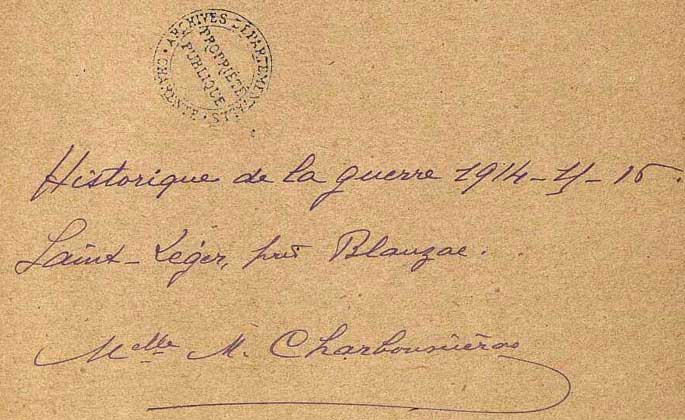 ARCHIVES DÉPARTEMENTALES
CHARENTE
PROPRIÉTÉ
PUBLIQUE
Historique de la guerre 1914-15-16.
Saint-Léger, près Blanzac.
Melle M. Charbonnières